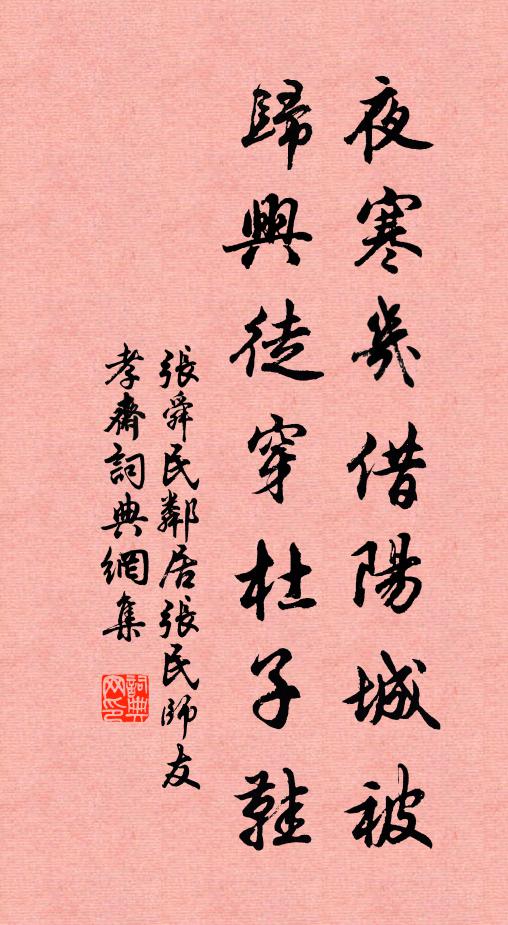 夜寒幾借陽城被
歸興徒穿杜子鞋
張舜民鄰居張民師友
孝齋詞典網集
詞典網印